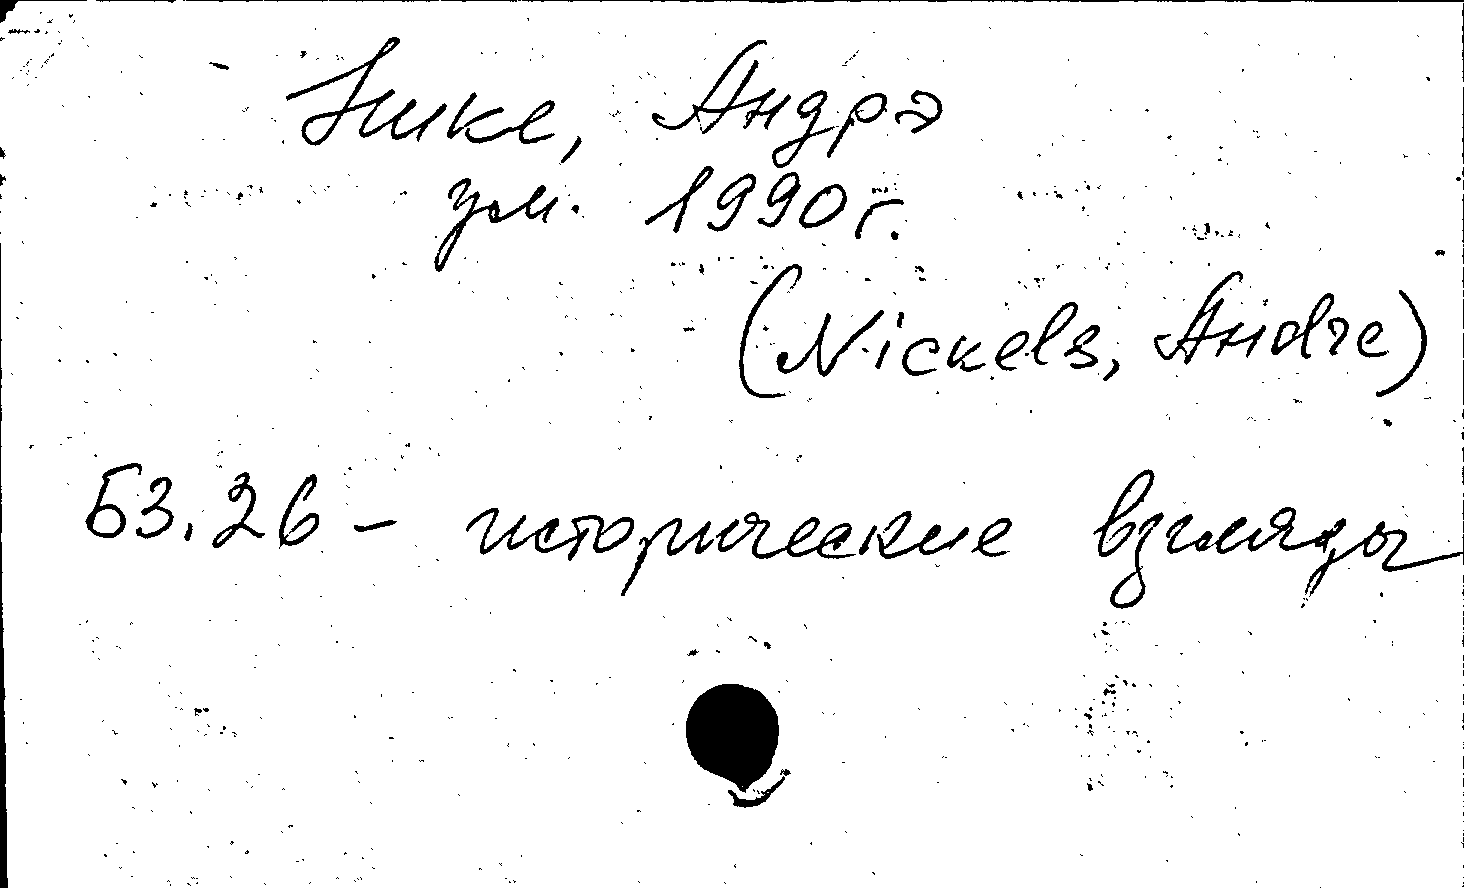 Нике, Андрэ
ум. 1990 г.
(Nickels, Andre)
Б3.26 – исторические взгляды